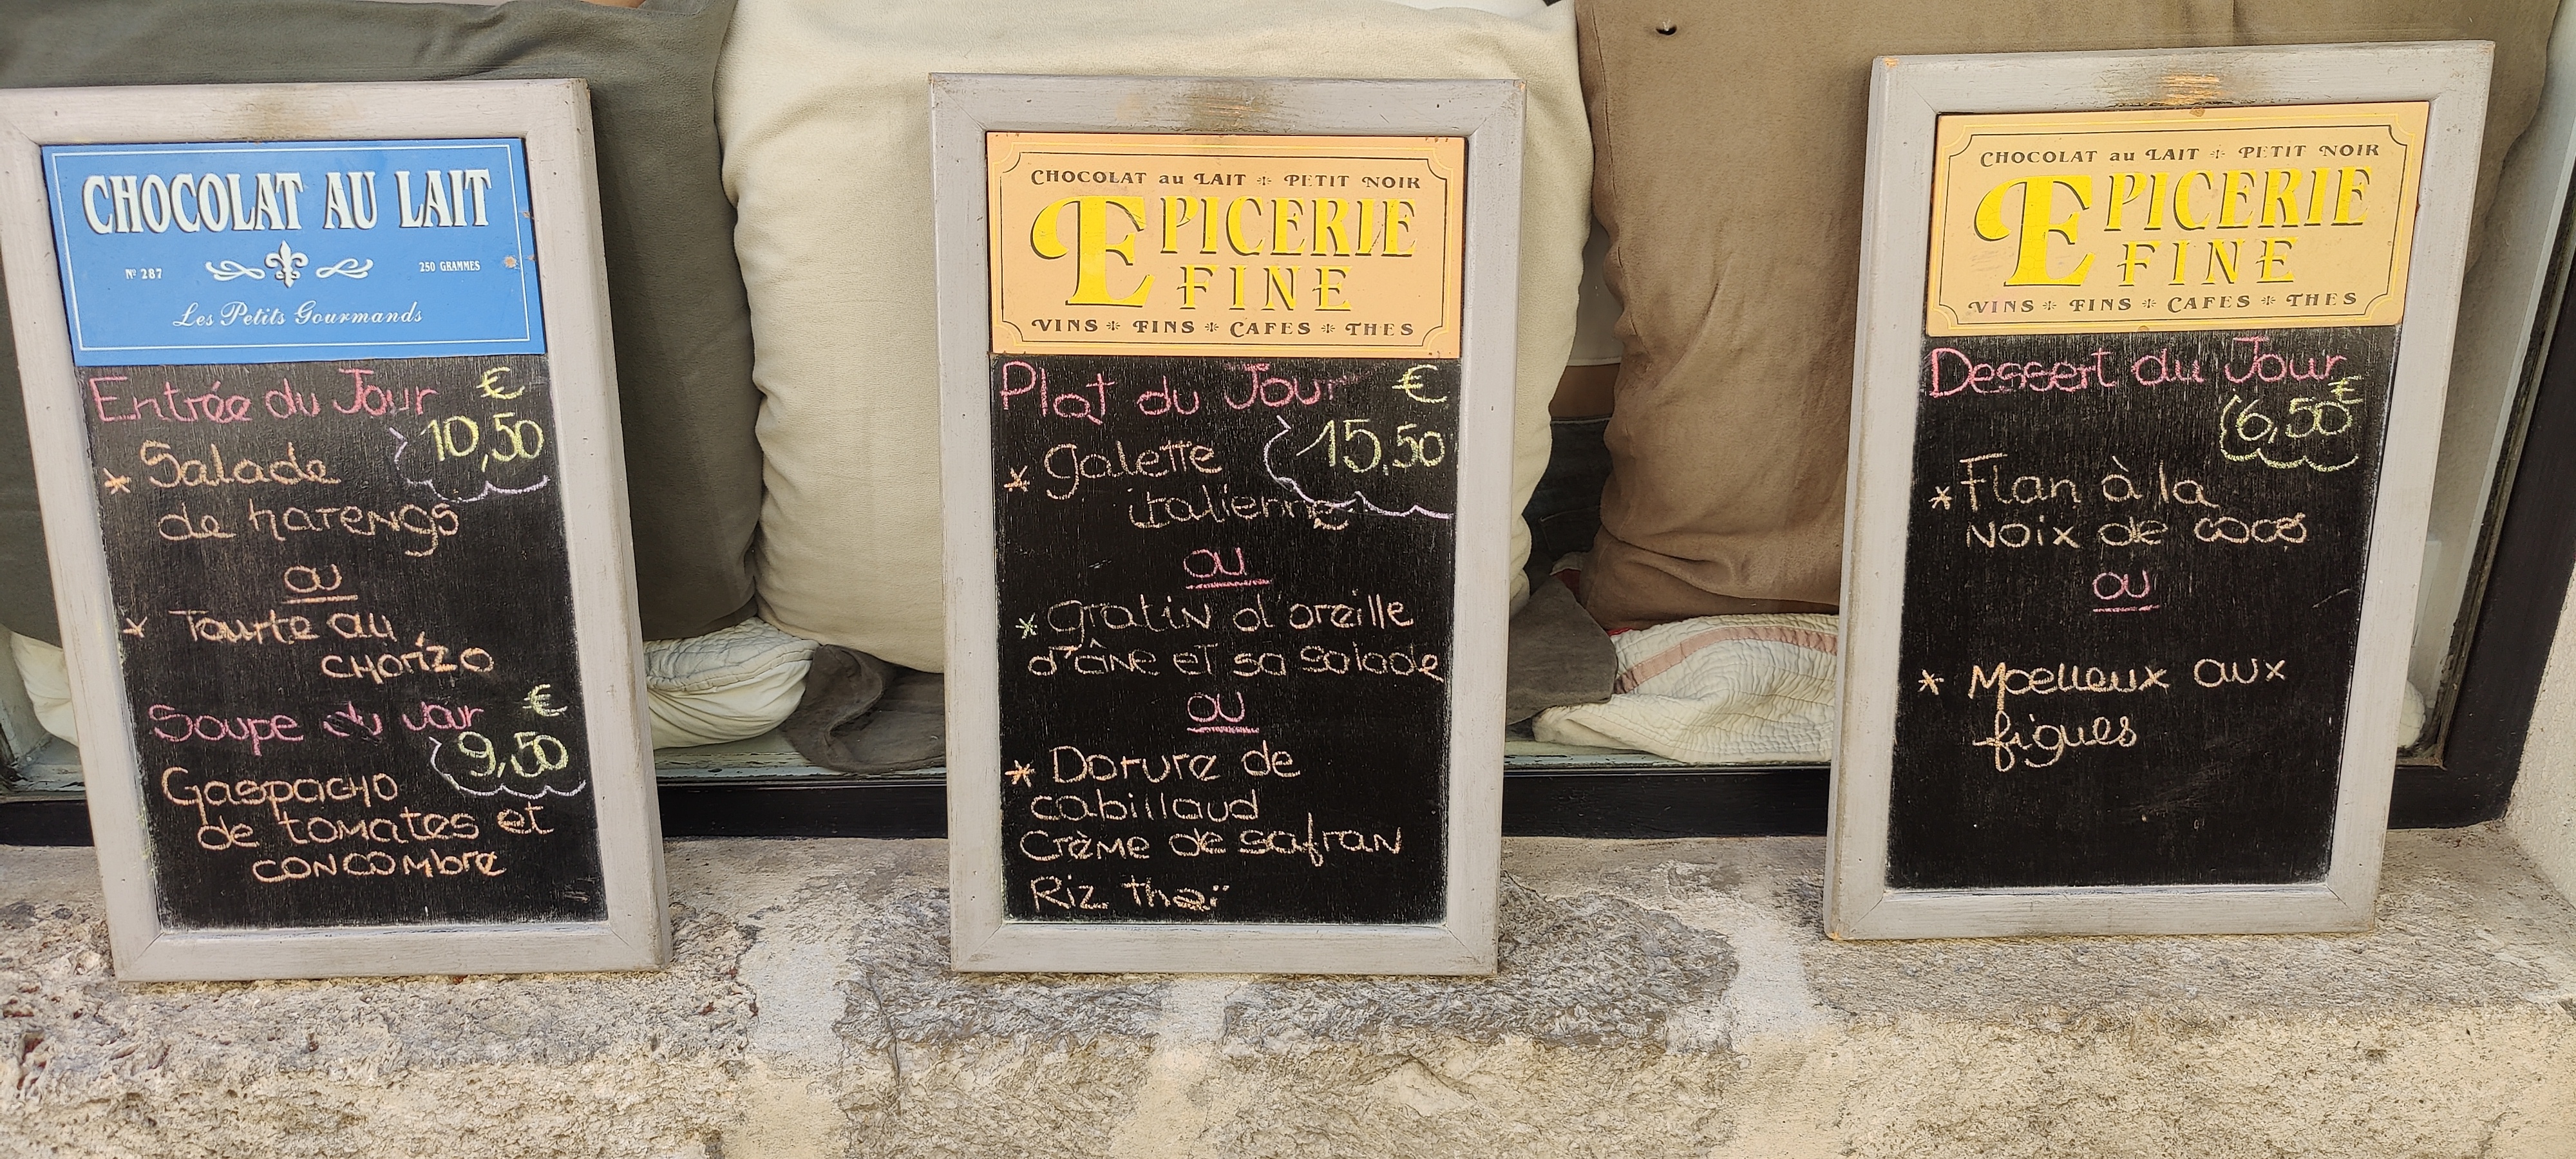 CHOCOLAT AU LAIT
Nº 287
250 GRAMMES
Les Petits Gourmands
Entrée du Jour €
10,50
* Salade
de harengs
ou
* Tourte au
CHORIZO
Soupe du Jour €
9,50
Gaspacho
de tomates et
concombre
CHOCOLAT au LAIT * PETIT NOIR
EPICERIE
FINE
VINS * FINS * CAFES * THES
Plat du Jour €
15,50
* Galette
italienne
ou
* Gratin d'oreille
d'âne et sa salade
ou
* Dorure de
cabillaud
Crème de safran
Riz thaï
CHOCOLAT au LAIT * PETIT NOIR
EPICERIE
FINE
VINS * FINS * CAFES * THES
Dessert du Jour
€
6,50
* Flan à la
noix de coco
ou
* Moelleux aux
figues